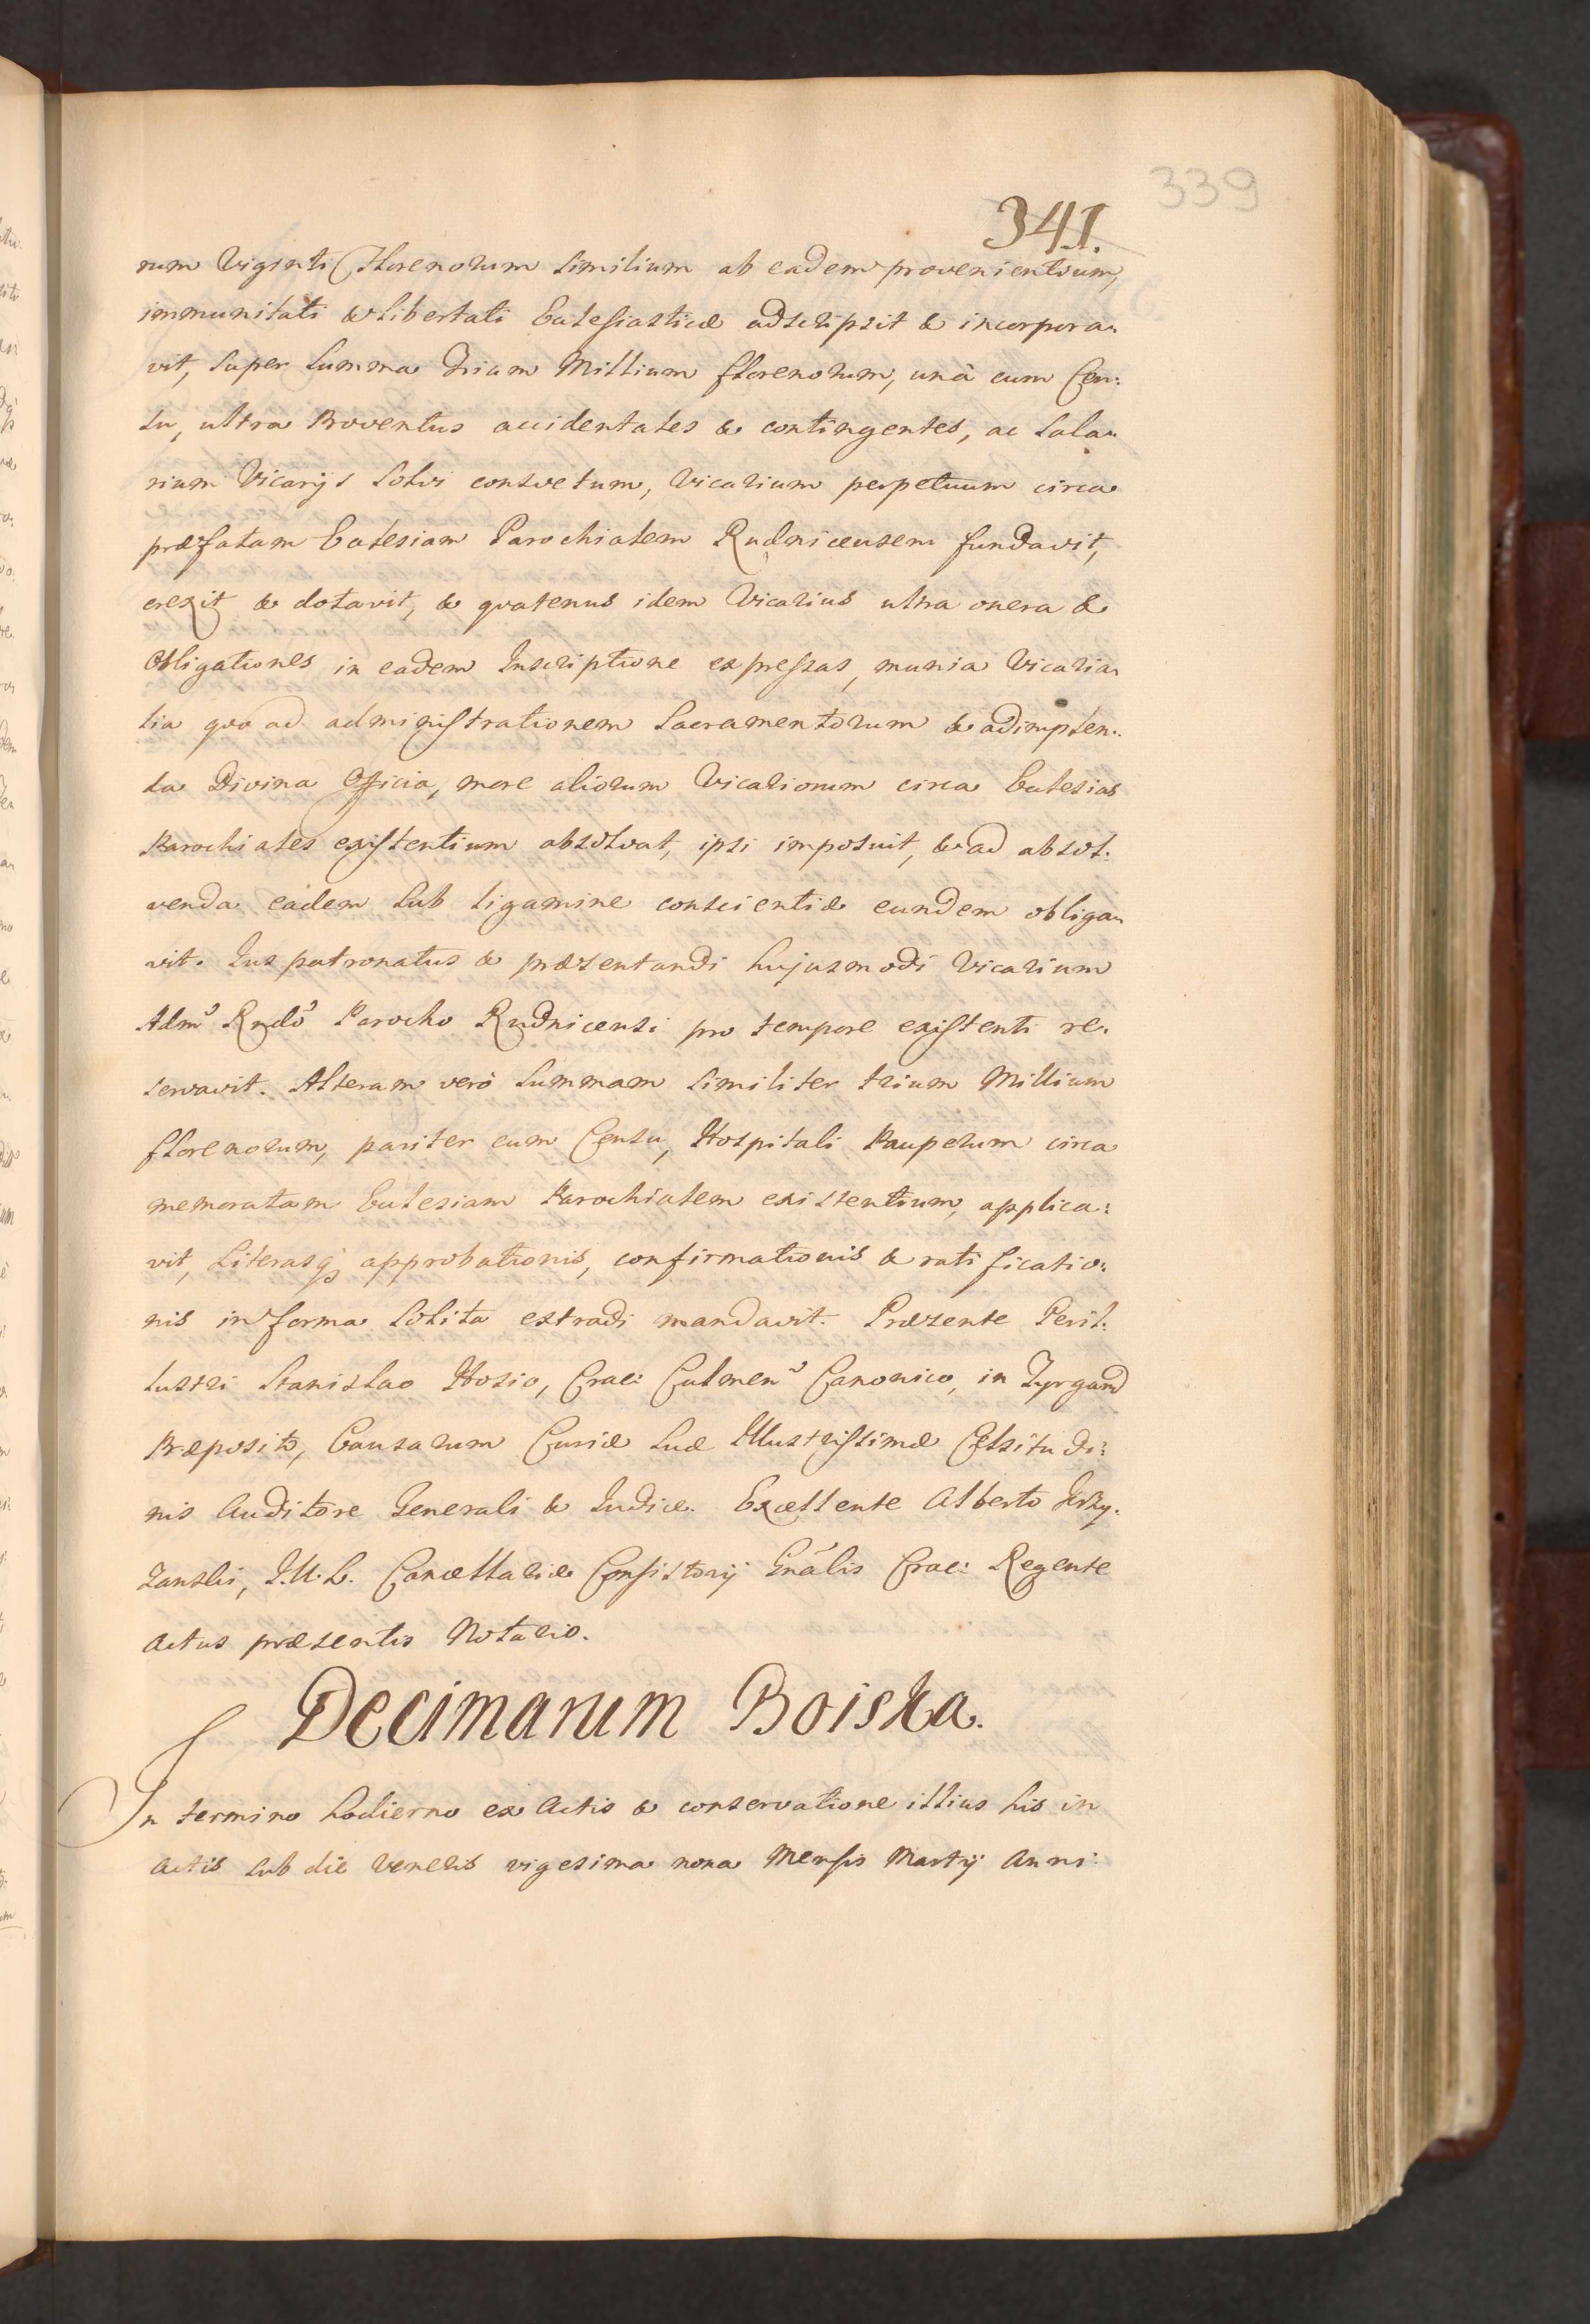 339
341.
rum Viginti Florenorum similium ab eadem provenientium,
immunitati & libertati Eclesiasticæ adscripsit & incorpora-
vit, super summa Trium Millium florenorum, unà cum Cen:
su, ultra Proventus accidentales & contingentes, ac sala-
rium Vicarijs solvi consvetum, Vicarium perpetuum circa
præfatam Eclesiam Parochialem Rudnicensem fundavit,
erexit & dotavit, & qvatenus idem Vicarius ultra onera &
Obligationes in eadem Inscriptione expressas, munia Vicaria-
lia qvo ad administrationem Sacramentorum & adimplen-
da Divina Officia, more aliorum Vicariorum circa Eclesias
Parochiales existentium absolvat, ipsi imposuit, & ad absol-
venda eadem sub ligamine conscientiæ eundem obliga-
vit. Jus patronatus & præsentandi hujusmodi Vicarium
Adm Rndo Parocho Rudnicensi pro tempore existenti re-
servavit. Alteram verò summam similiter trium Millium
florenorum, pariter cum Censu, Hospitali Pauperum circa
memoratam Eclesiam Parochialem existentium, applica:
vit, Literasq; approbationis, confirmationis & ratificatio:
nis in forma solita extradi mandavit. Præsente Peril:
lustri Stanislao Hosio, Crac: Culmen Canonico, in Tyrgand
Præposito, Causarum Curiæ suæ Illustrissimæ Celsitudi:
nis Auditore Generali & Judice. Excellente Alberto
J.U.L. Cancellariæ Consistorij Gnális Crac: Regente
Actus præsentis Notario.
Decimarum Boiska.
In termino hodierno ex Actis & conservatione illius his in
Actis sub die Veneris vigesima nona Mensis Martij Anni